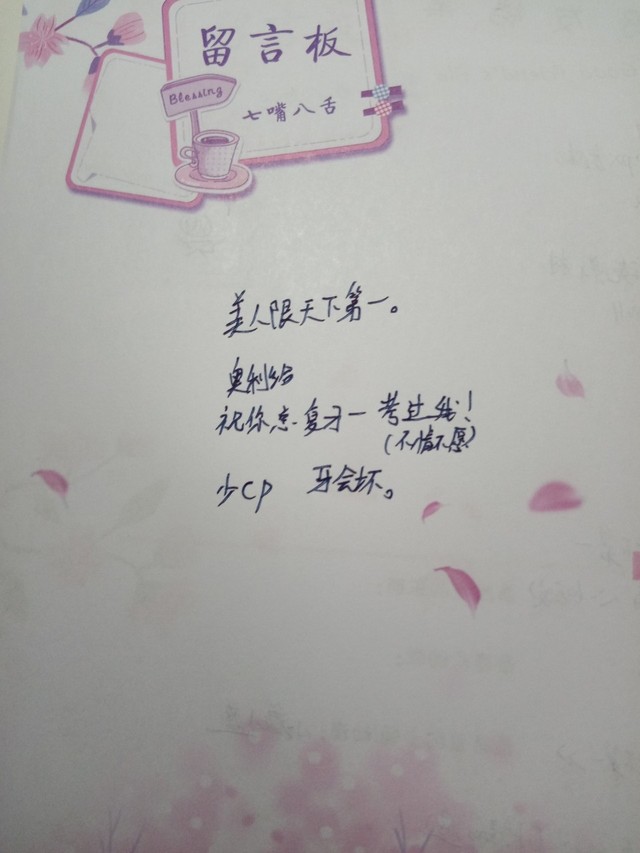 留言板
Blessing
七嘴八舌
美人眼天下第一。
奥利给
祝你总复习一考过我!
(不情不愿)
少cp 牙会坏。